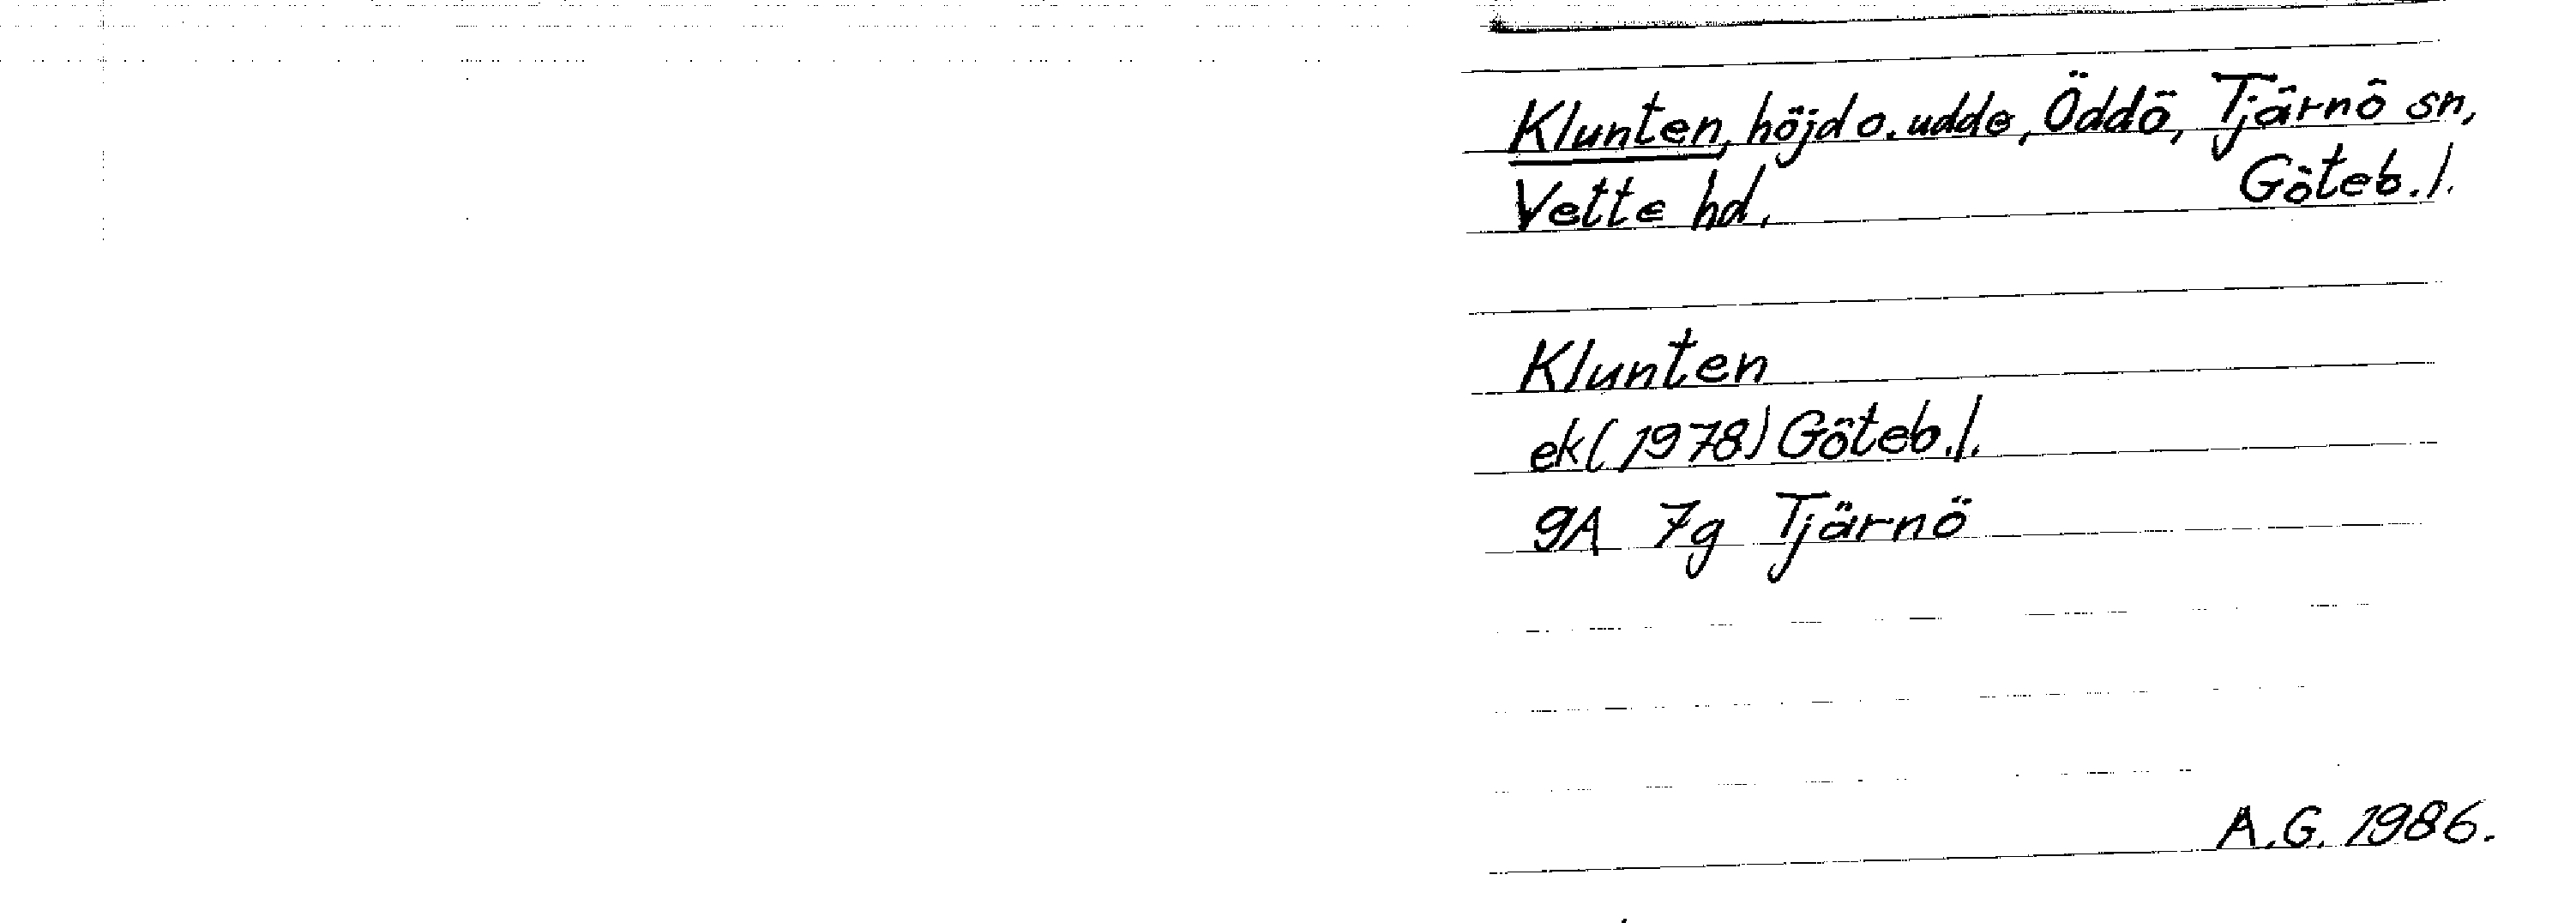 Klunten, höjd o. udde, Öddö, Tjärnö sn,
Vette hd. Göteb. l.
Klunten
ek (1978) Göteb. l.
9A 7g Tjärnö
A.G. 1986.